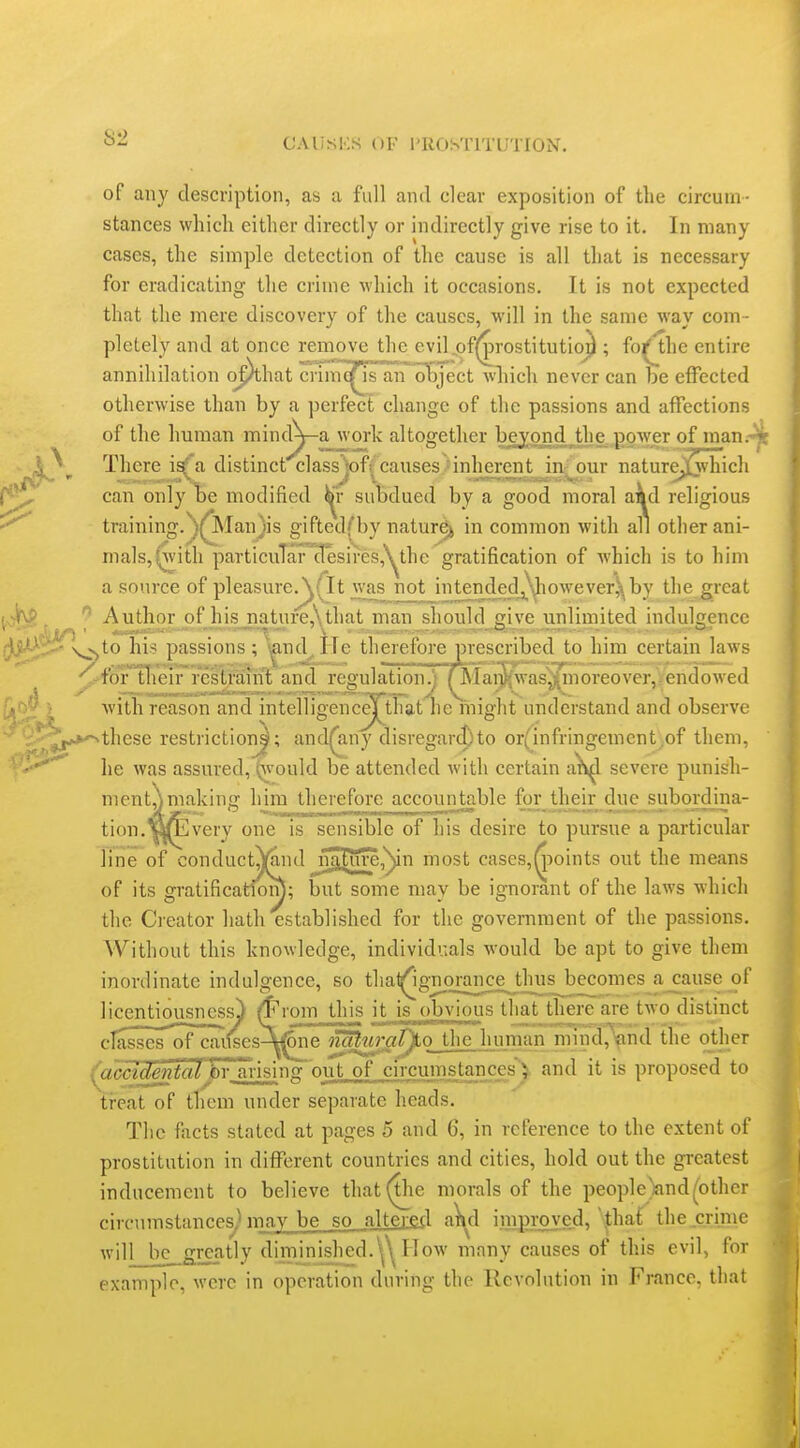 82
CAUSES OF PROSTITUTION.
of any description, as a full and clear exposition of the circum-
stances which either directly or indirectly give rise to it. In many
cases, the simple detection of the cause is all that is necessary
for eradicating the crime which it occasions. It is not expected
that the mere discovery of the causes, will in the same way com-
pletely and at once remove the evil of prostitution; for the entire
annihilation of that crime is an object which never can be effected
otherwise than by a perfect change of the passions and affections
of the human mind—a work altogether beyond the power of man.
There is a distinct class of causes inherent in our nature, which
can only be modified or subdued by a good moral and religious
training. Man is gifted by nature, in common with all other ani-
mals, with particular desires, the gratification of which is to him
a source of pleasure. It was not intended, however, by the great
Author of his nature, that man should give unlimited indulgence
to his passions; and He therefore prescribed to him certain laws
for their restraint and regulation. Man was, moreover, endowed
with reason and intelligence that he might understand and observe
these restrictions; and any disregard to or infringement of them,
he was assured, would be attended with certain and severe punish-
ment, making him therefore accountable for their due subordina-
tion. Every one is sensible of his desire to pursue a particular
line of conduct, and nature, in most cases, points out the means
of its gratification; but some may be ignorant of the laws which
the Creator hath established for the government of the passions.
Without this knowledge, individuals would be apt to give them
inordinate indulgence, so that ignorance thus becomes a cause of
licentiousness. From this it is obvious that there are two distinct
classes of causes—one natural to the human mind, and the other
accidental or arising out of circumstances; and it is proposed to
treat of them under separate heads.
The facts stated at pages 5 and 6, in reference to the extent of
prostitution in different countries and cities, hold out the greatest
inducement to believe that the morals of the people and other
circumstances may be so altered and improved, that the crime
will be greatly diminished. How many causes of this evil, for
example, were in operation during the Revolution in France, that